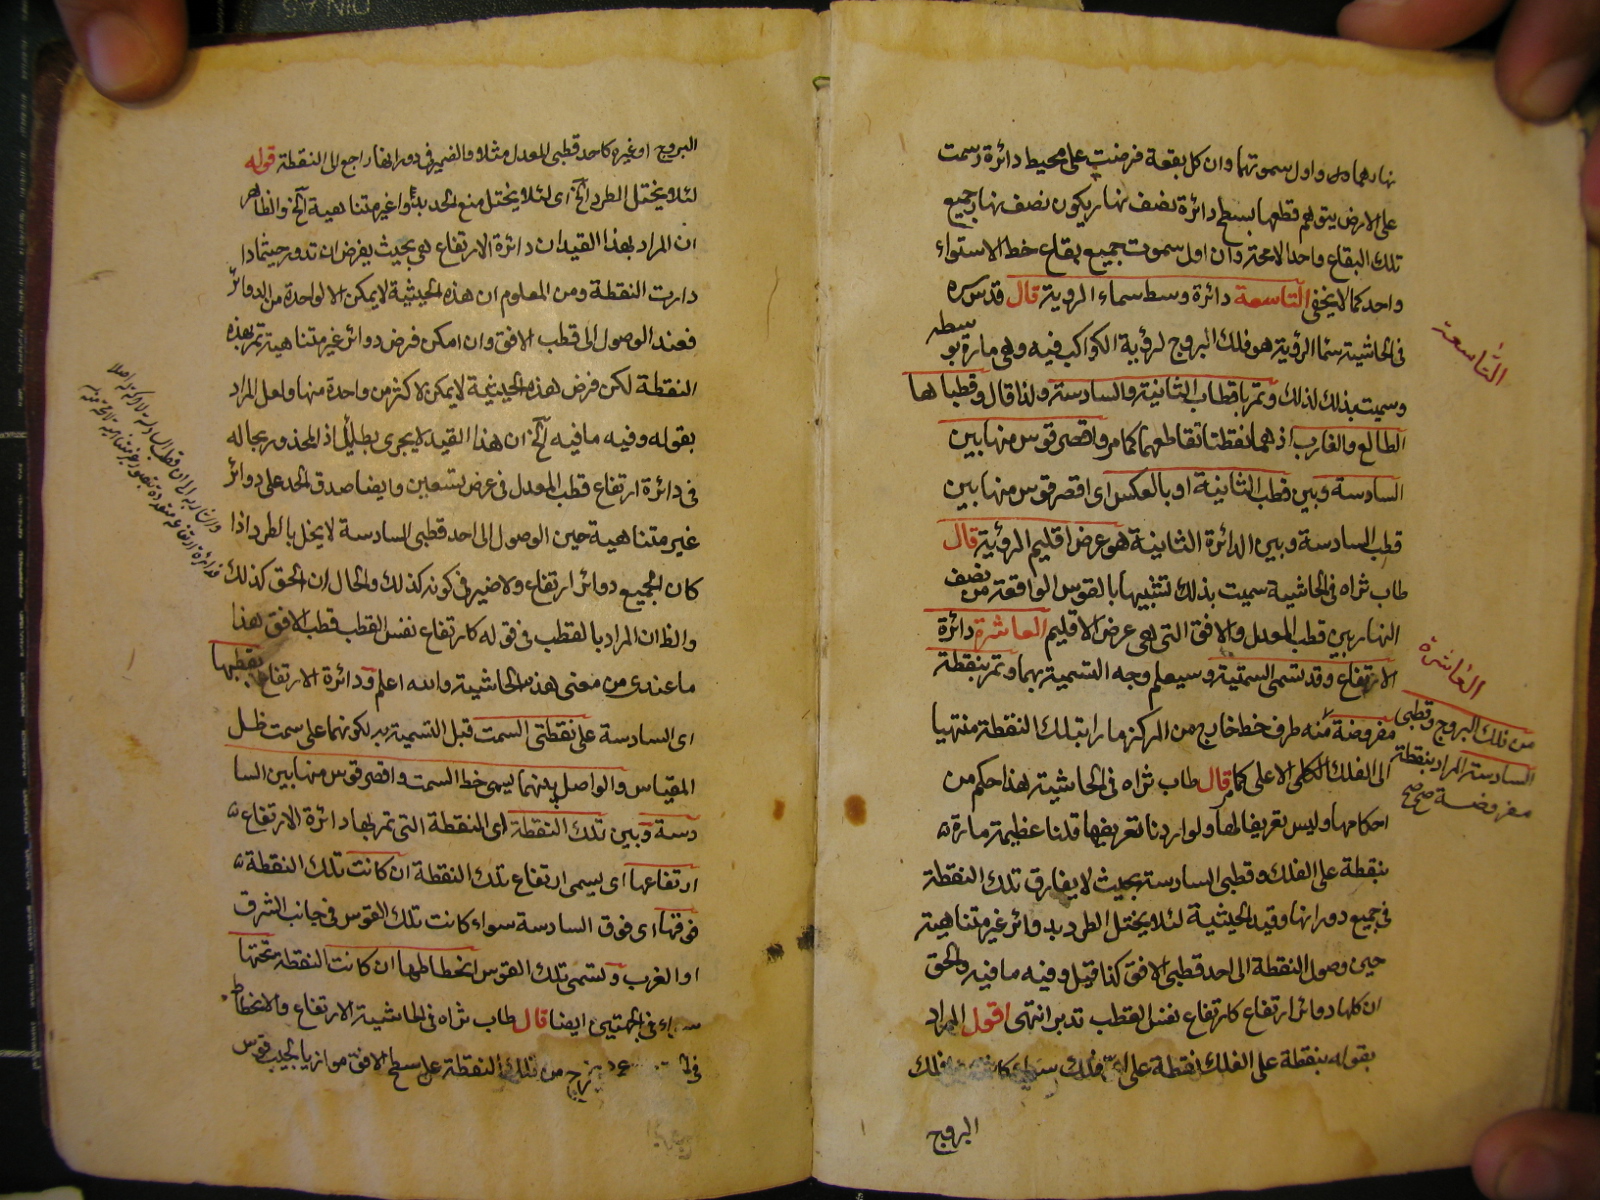 نهارهما دل واول سموتهما وان كل بقعة فرضت على محيط دائرة رسمت
على الارض يتوهم قطعها بسطح دائرة نصف نهار يكون نصف نهار جميع
تلك البقاع واحدا لا محة وان اول سموت جميع بقاع خط الاستواء
واحد كما لا يخفى التاسعة دائرة وسط سماء الروية قال قدس سره
فى الحاشية سما الرؤية هو فلك البروج لرؤية الكواكب فيه وهى مارة بوسطه
وسميت بذلك لذلك وتمر باقطاب الثانية والسادسة ولذا قال وقطباها
الطالع والغارب اذ هما نقطتا تقاطعهما كما مر واقصر قوس منها بين
السادسة وبين قطب الثانية او بالعكس اى اقصر قوس منها بين
قطب السادسة وبين الدائرة الثانية هو عرض اقليم الرؤية قال
طاب ثراه فى الحاشية سميت بذلك تشبيها بالقوس الواقعة من نصف
النهار بين قطب المعدل والافق التى هى عرض الاقليم العاشرة دائرة
الارتفاع وقد تسمى السمتية وسيعلم وجه التسمية بهما وتمر بنقطة
مفروضة منه طرف خط خارج من المركز مارا بتلك النقطة منتهيا
الى الفلك الكلى الاعلى كما مر قال طاب ثراه فى الحاشية هذا حكم من
احكامها وليس تعريفا لها ولو اردنا تعريفها قلنا عظيمة مارة
بنقطة على الفلك وقطبى السادسة بحيث لا يفارق تلك النقطة
فى جميع دورانها وقيد الحيثية لئلا يختل الطرد بدوائر غير متناهية
حين وصول النقطة الى احد قطبى الافق كذا قيل وفيه ما فيه والحق
ان كلها دوائر ارتفاع كارتفاع نفس القطب تدبر انتهى اقول المراد
بقوله بنقطة على الفلك نقطة على اى فلك سواء كانت فلك
البروج
التاسعة
العاشرة
من فلك البروج وقطبى
السادسة المراد بنقطة
مفروضة صح صح
البروج او غيره كاحد قطبى المعدل مثلا والضمير فى دورانها راجع الى النقطة قوله
لئلا يختل الطرد الخ اى لئلا يختل منع الحد بدوائر غير متناهية الخ والظاهر
ان المراد بهذا القيد ان دائرة الارتفاع هى بحيث يفرض ان تدور حيثما دا
دارت النقطة ومن المعلوم ان هذه الحيثية لا يمكن الا لواحدة من الدوائر
فعند الوصول الى قطب الافق وان امكن فرض دوائر غير متناهية تمر بهذه
النقطة لكن فرض هذه الحيثية لا يمكن لاكثر من واحدة منها ولعل المراد
بقوله وفيه ما فيه الخ ان هذا القيد لا يجرى بطائل اذ المحذور بحاله
فى دائرة ارتفاع قطب المعدل فى عرض تسعين وايضا صدق الحد على دوائر
غير متناهية حين الوصول الى احد قطبى السادسة لا يخل بالطرد اذا
كان الجميع دوائر ارتفاع ولا ضير فى كونه كذلك والحال ان الحق كذلك
والظ ان المراد بالقطب فى قوله كارتفاع نفس القطب قطب الافق هذا
ما عندى من معنى هذه الحاشية والله اعلم ودائرة الارتفاع بقطبها
اى السادسة على نقطتى السمت قبل التسمية به لكونهما على سمت ظل
المقياس والواصل بينهما يسمى خط السمت واقصر قوس منها بين السا
دسة وبين تلك النقطة اى النقطة التى تمر بها دائرة الارتفاع
ارتفاعها اى يسمى ارتفاع تلك النقطة ان كانت تلك النقطة
فوقها اى فوق السادسة سواء كانت تلك القوس فى جانب الشرق
او الغرب وتسمى تلك القوس انحطاطها ان كانت النقطة تحتها
سواء فى الجهتين ايضا قال طاب ثراه فى الحاشية الارتفاع والانحطاط
من تلك النقطة على سطح الافق موازيا لجيب قوس